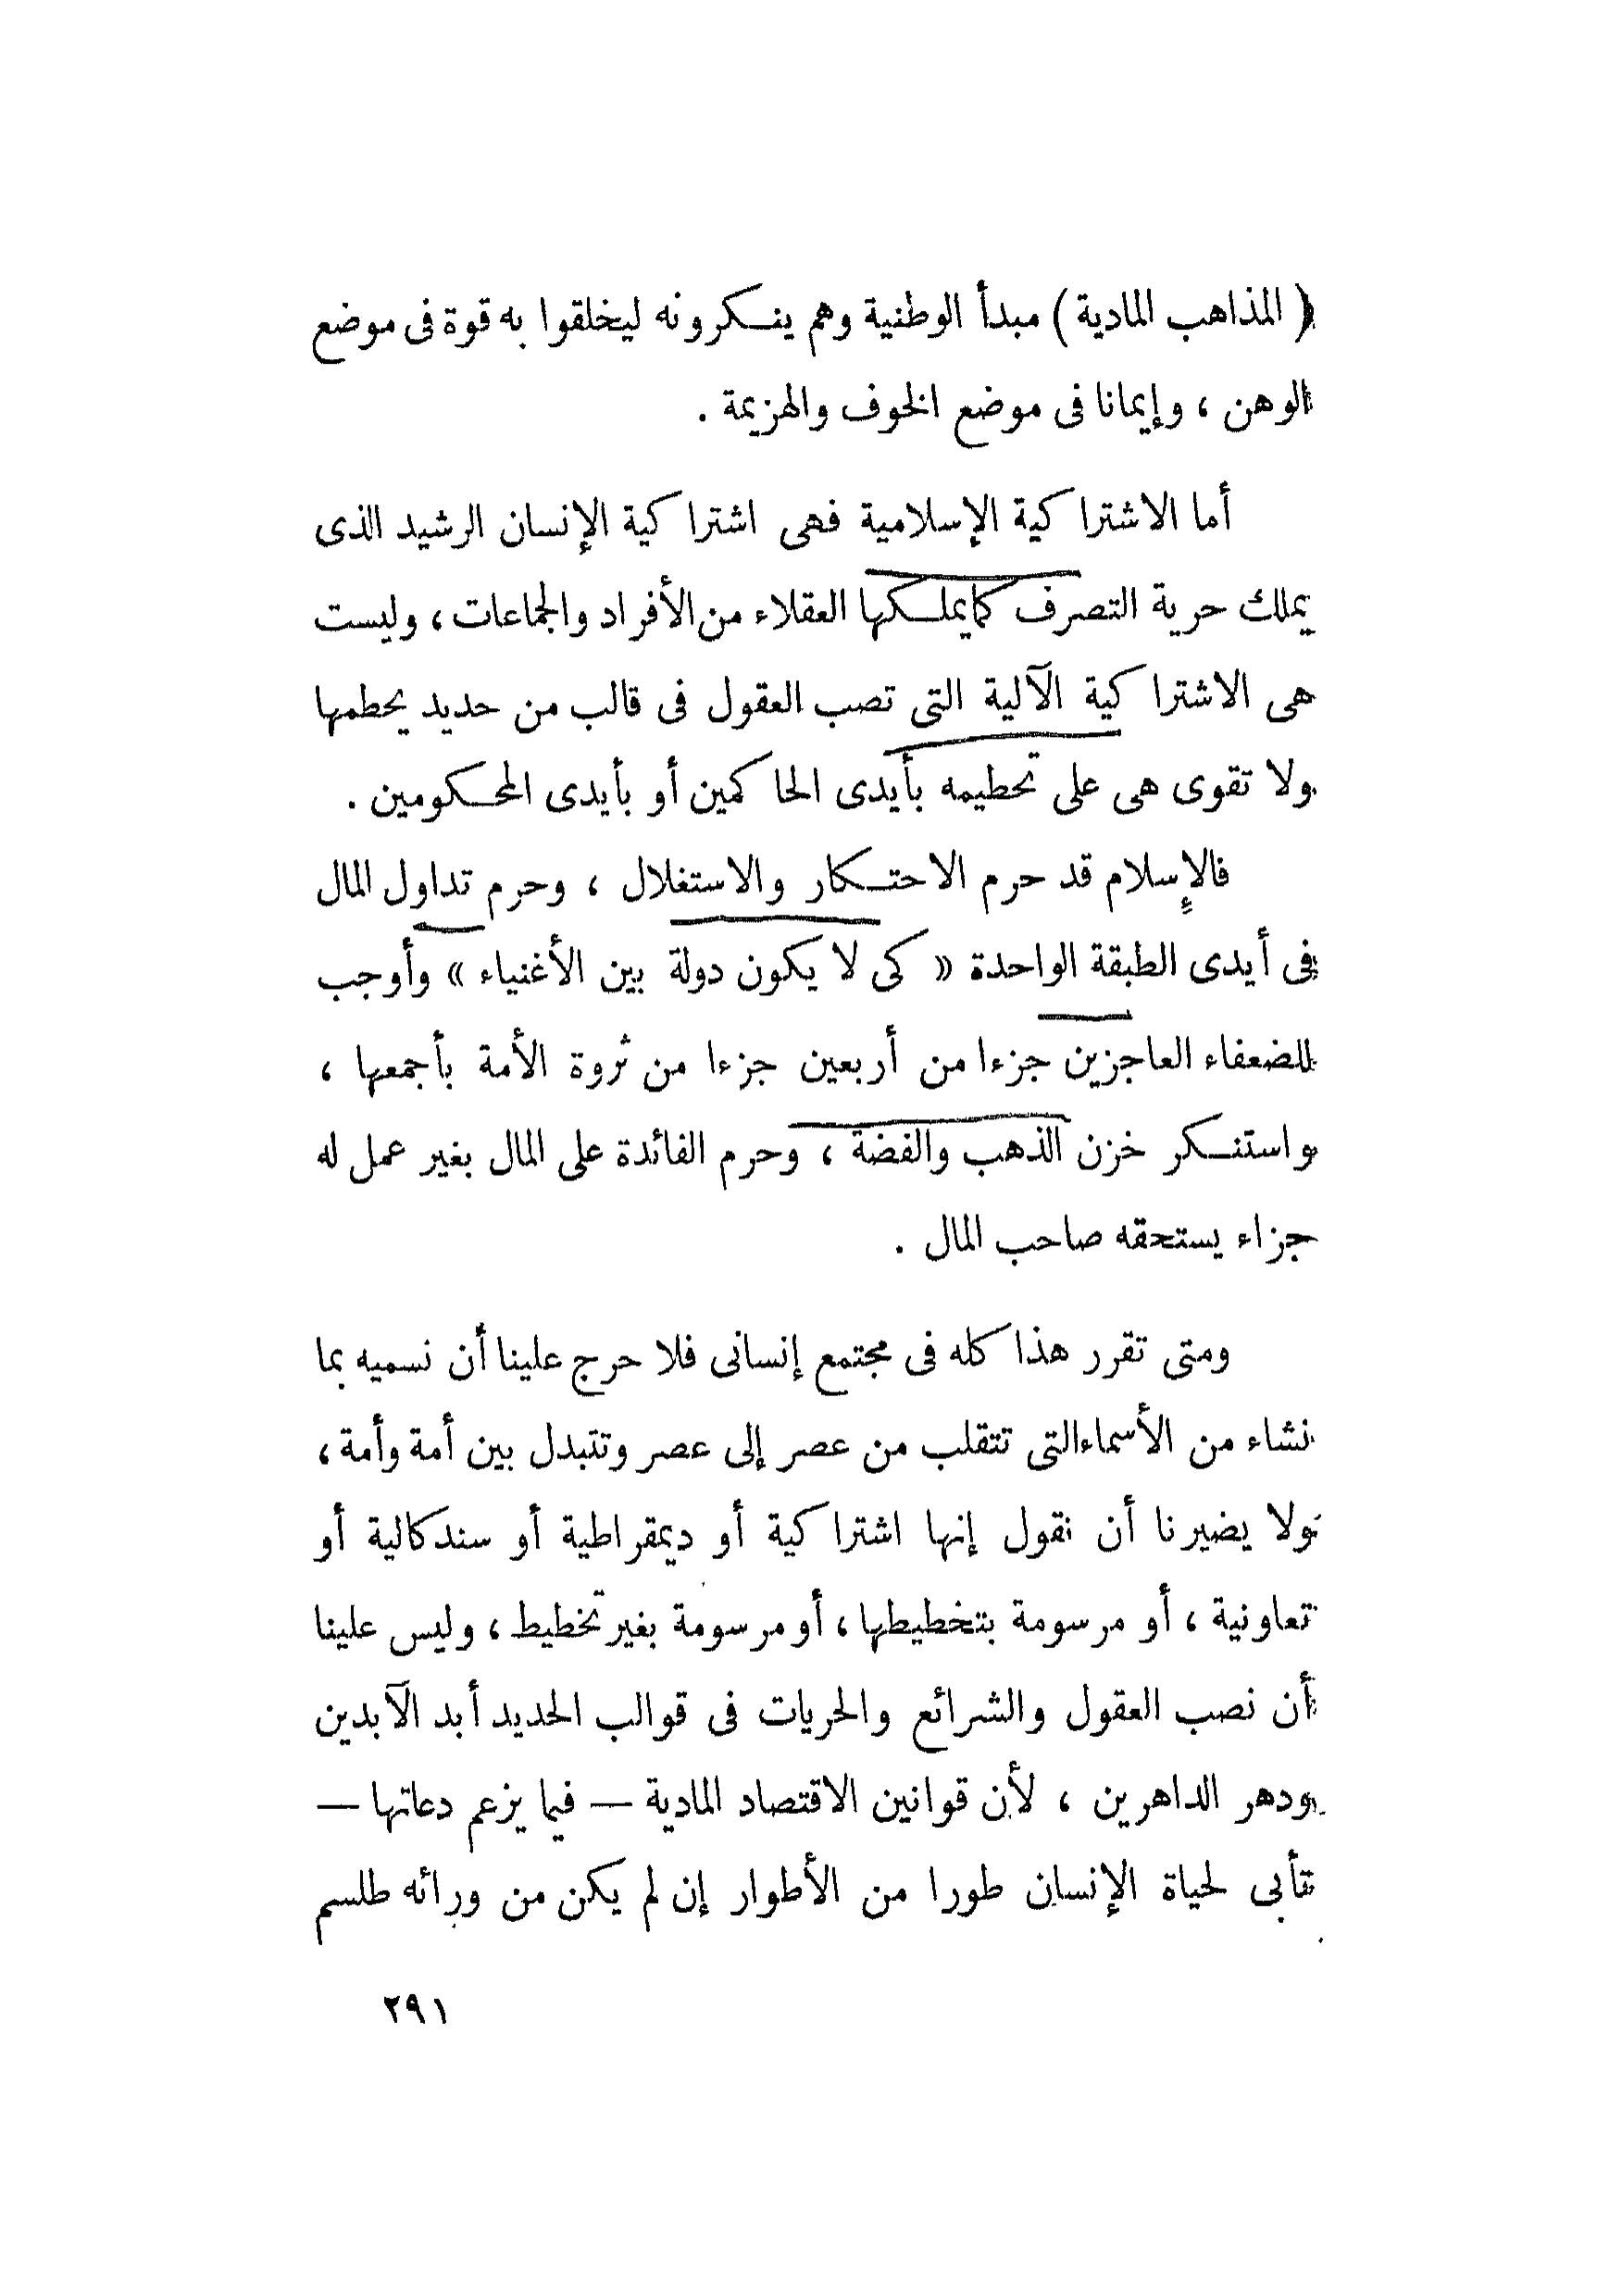 ( المذاهب المادية ) مبدأ الوطنية وهم ينكرونه ليخلقوا به قوة فى موضع
الوهن ، وإيمانا فى موضع الخوف والهزيمة .
أما الاشتراكية الإسلامية فهى اشتراكية الإنسان الرشيد الذى
يملك حرية التصرف كما يملكها العقلاء من الأفراد والجماعات ، وليست
هى الاشتراكية الآلية التى تصب العقول فى قالب من حديد يحطمها
ولا تقوى هى على تحطيمه بأيدى الحاكمين أو بأيدى المحكومين .
فالإسلام قد حرم الاحتكار والاستغلال ، وحرم تداول المال
فى أيدى الطبقة الواحدة « كى لا يكون دولة بين الأغنياء » وأوجب
للضعفاء العاجزين جزءا من أربعين جزءا من ثروة الأمة بأجمعها ،
واستنكر خزن الذهب والفضة ، وحرم الفائدة على المال بغير عمل له
جزاء يستحقه صاحب المال .
ومتى تقرر هذا كله فى مجتمع إنسانى فلا حرج علينا أن نسميه بما
نشاء من الأسماء التى تتقلب من عصر إلى عصر وتتبدل بين أمة وأمة ،
ولا يضيرنا أن نقول إنها اشتراكية أو ديمقراطية أو سندكالية أو
تعاونية ، أو مرسومة بتخطيطها ، أو مرسومة بغير تخطيط ، وليس علينا
أن نصب العقول والشرائع والحريات فى قوالب الحديد أبد الآبدين
ودهر الداهرين ، لأن قوانين الاقتصاد المادية — فيما يزعم دعاتها —
تأبى لحياة الإنسان طورا من الأطوار إن لم يكن من ورائه طلسم
٢٩١